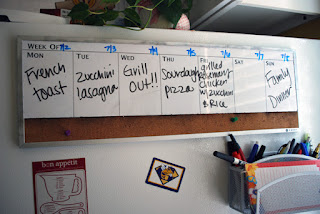 WEEK OF 7/2 7/3 7/4 7/5 7/6 7/7 7/8
MON TUE WED THU FRI SAT SUN
French
toast
zucchini
lasagna
Grill
OUT!!
Sourdough
pizza
grilled
Rosemary
chicken
w/ zucchini
& Rice
Family
Dinner
bon appetit